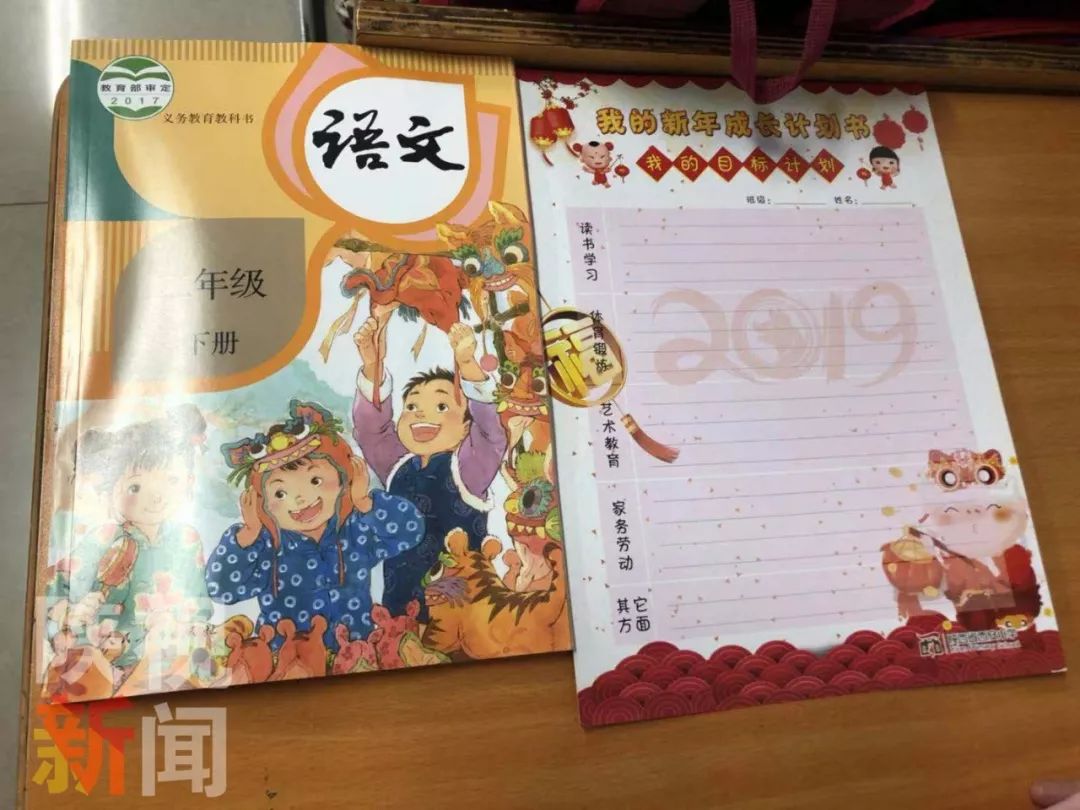 教育部审定
2017
义务教育教科书
语文
二年级
下册
我的新年成长计划书
我的目标计划
班级：
姓名：
读书学习
体育锻炼
艺术教育
家务劳动
其它方面
2019
福
新闻